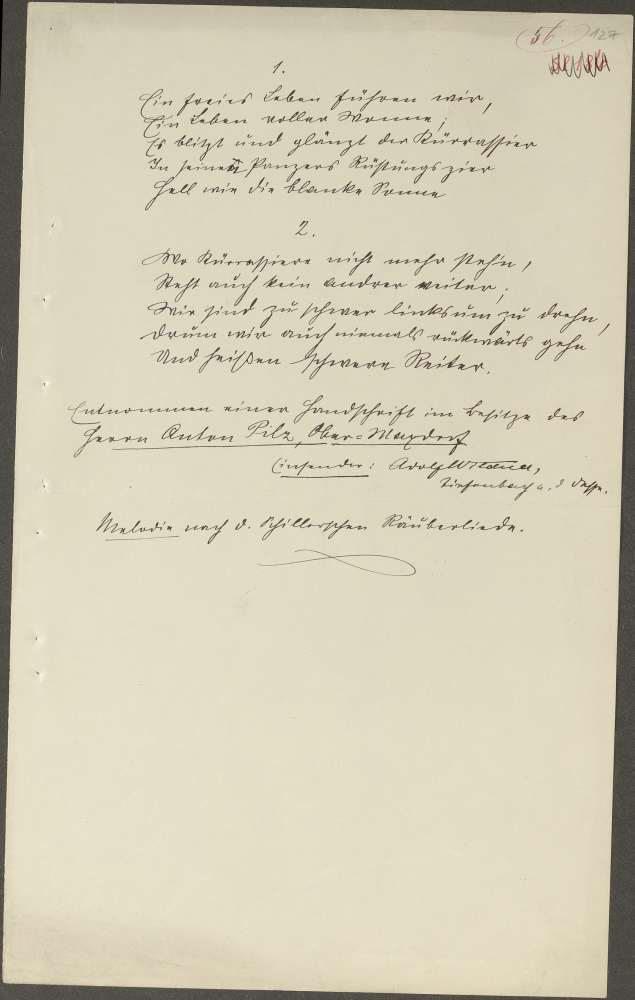 56. 127
1.
Ein freies Leben führen wir,
Ein Leben voller Wonne;
Es blitzt und glänzt der Kürrassier
In seines Panzers Rüstungszier
Hell wie die blanke Sonne
2.
Wo Kürrassiere nicht mehr steh'n,
Steht auch kein andrer weiter;
Wir sind zu schwer linksum zu drehn,
Drum wir auch niemals rückwärts gehn
Und heißen schwere Reiter.
Entnommen einer Handschrift im Besitze des
Herrn Anton Pilz, Ober-Maxdorf
Einsender: Adolf
Tiefenbach a. d Desse.
Melodie nach d. Schillerschen Räuberliede.